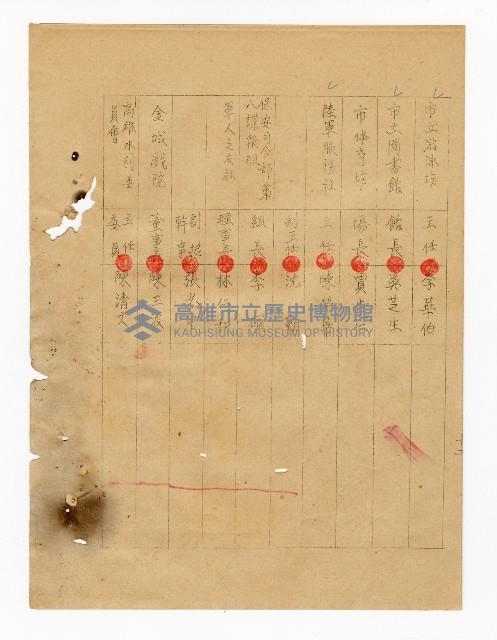 市立游泳场 主任 李華伯
市立圖書館 館長 吳芝生
市体育場 場長
陸軍服務社 主任 陳
副主任 沈
保安司令部第八諜報組 組長 李
軍人之友社 理事長 林
副總幹事 張
金城戲院 董事長 陳三
高雄水利委員會 主任委員 陳清文
高雄市立歷史博物館
KAOHSIUNG MUSEUM OF HISTORY